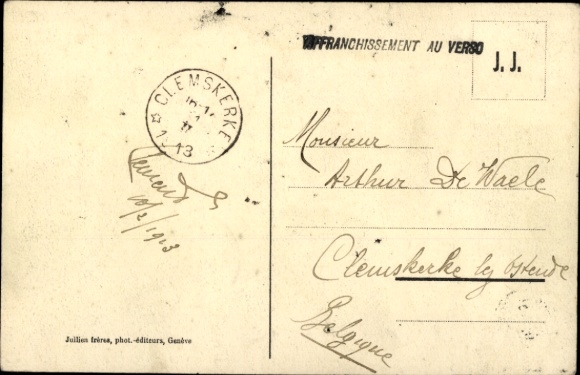 AFFRANCHISSEMENT AU VERSO
J. J.
CLEMSKERKE
1913
10/2/1913
Monsieur
Arthur De Waele
Clemskerke by Ostende
Belgique
Jullien frères, phot.-éditeurs, Genève